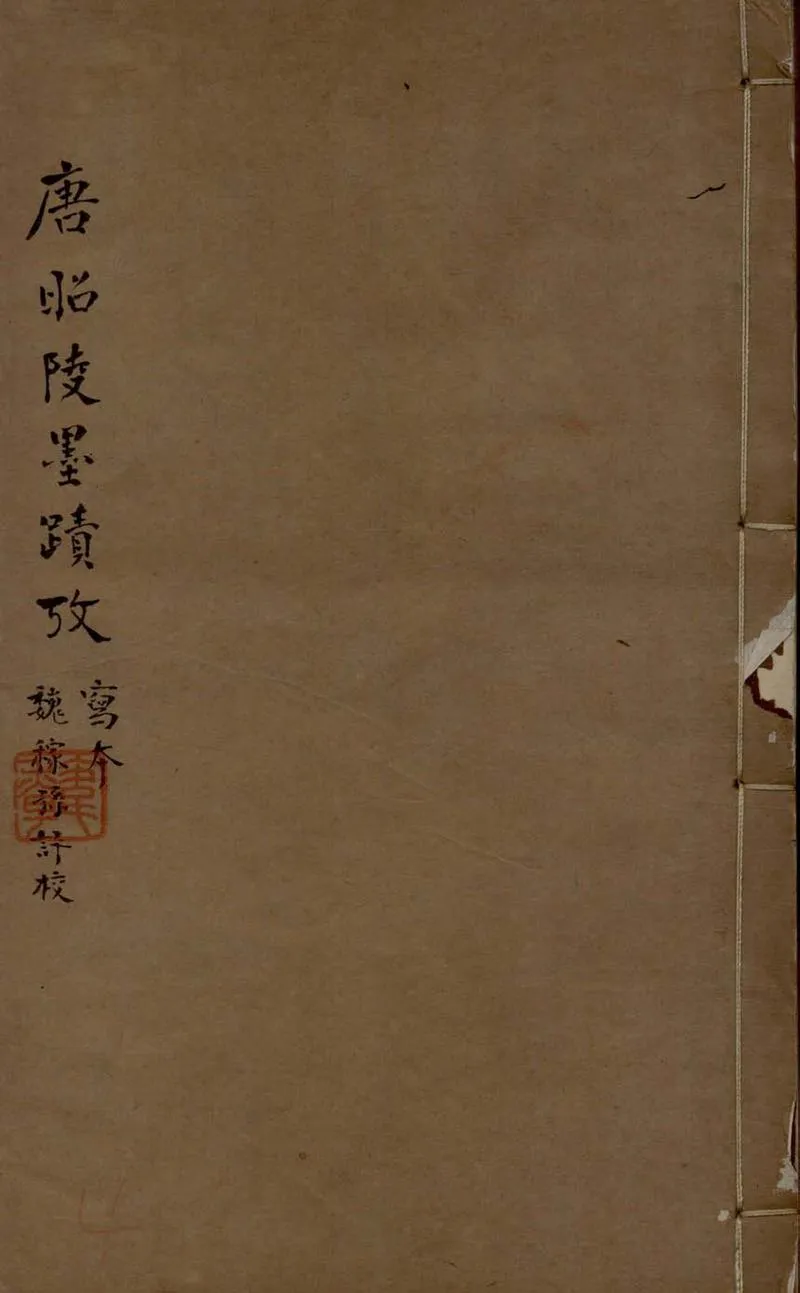 唐昭陵墨蹟攷
寫本
魏稼孫評校